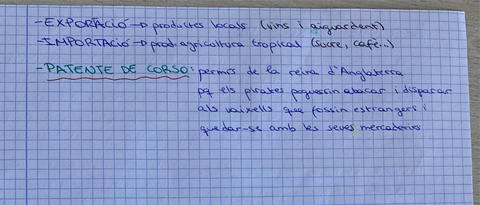 -EXPORTACIÓ → productes locals (vins i aiguardent)
-IMPORTACIÓ → prod. agricultura tropical (sucre, cafè...)
-PATENTE DE CORSO: permís de la reina d'Anglaterra
pq els pirates poguessin atacar i disparar
als vaixells que fossin estrangers i
quedar-se amb les seves mercaderies